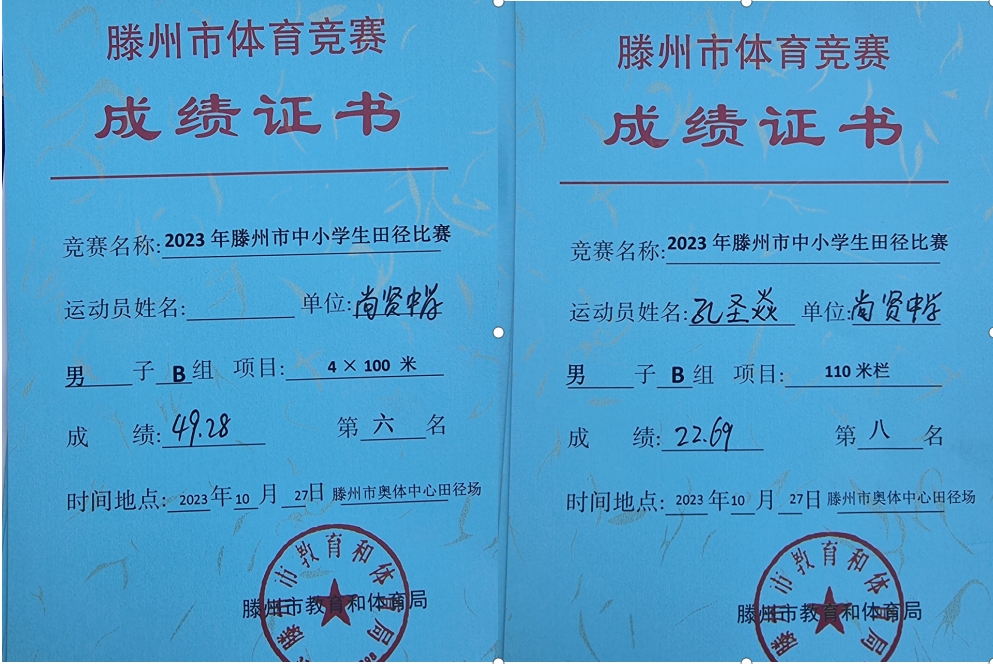 滕州市体育竞赛
成绩证书
竞赛名称:2023 年滕州市中小学生田径比赛
运动员姓名: 单位:尚贤中学
男 子 B 组 项目: 4 × 100 米
成 绩: 49.28 第 六 名
时间地点: 2023 年 10 月 27 日 滕州市奥体中心田径场
滕州市教育和体育局
滕州市教育和体育局
滕州市体育竞赛
成绩证书
竞赛名称:2023 年滕州市中小学生田径比赛
运动员姓名:孔圣焱 单位:尚贤中学
男 子 B 组 项目: 110 米栏
成 绩: 22.69 第 八 名
时间地点: 2023 年 10 月 27 日 滕州市奥体中心田径场
滕州市教育和体育局
滕州市教育和体育局